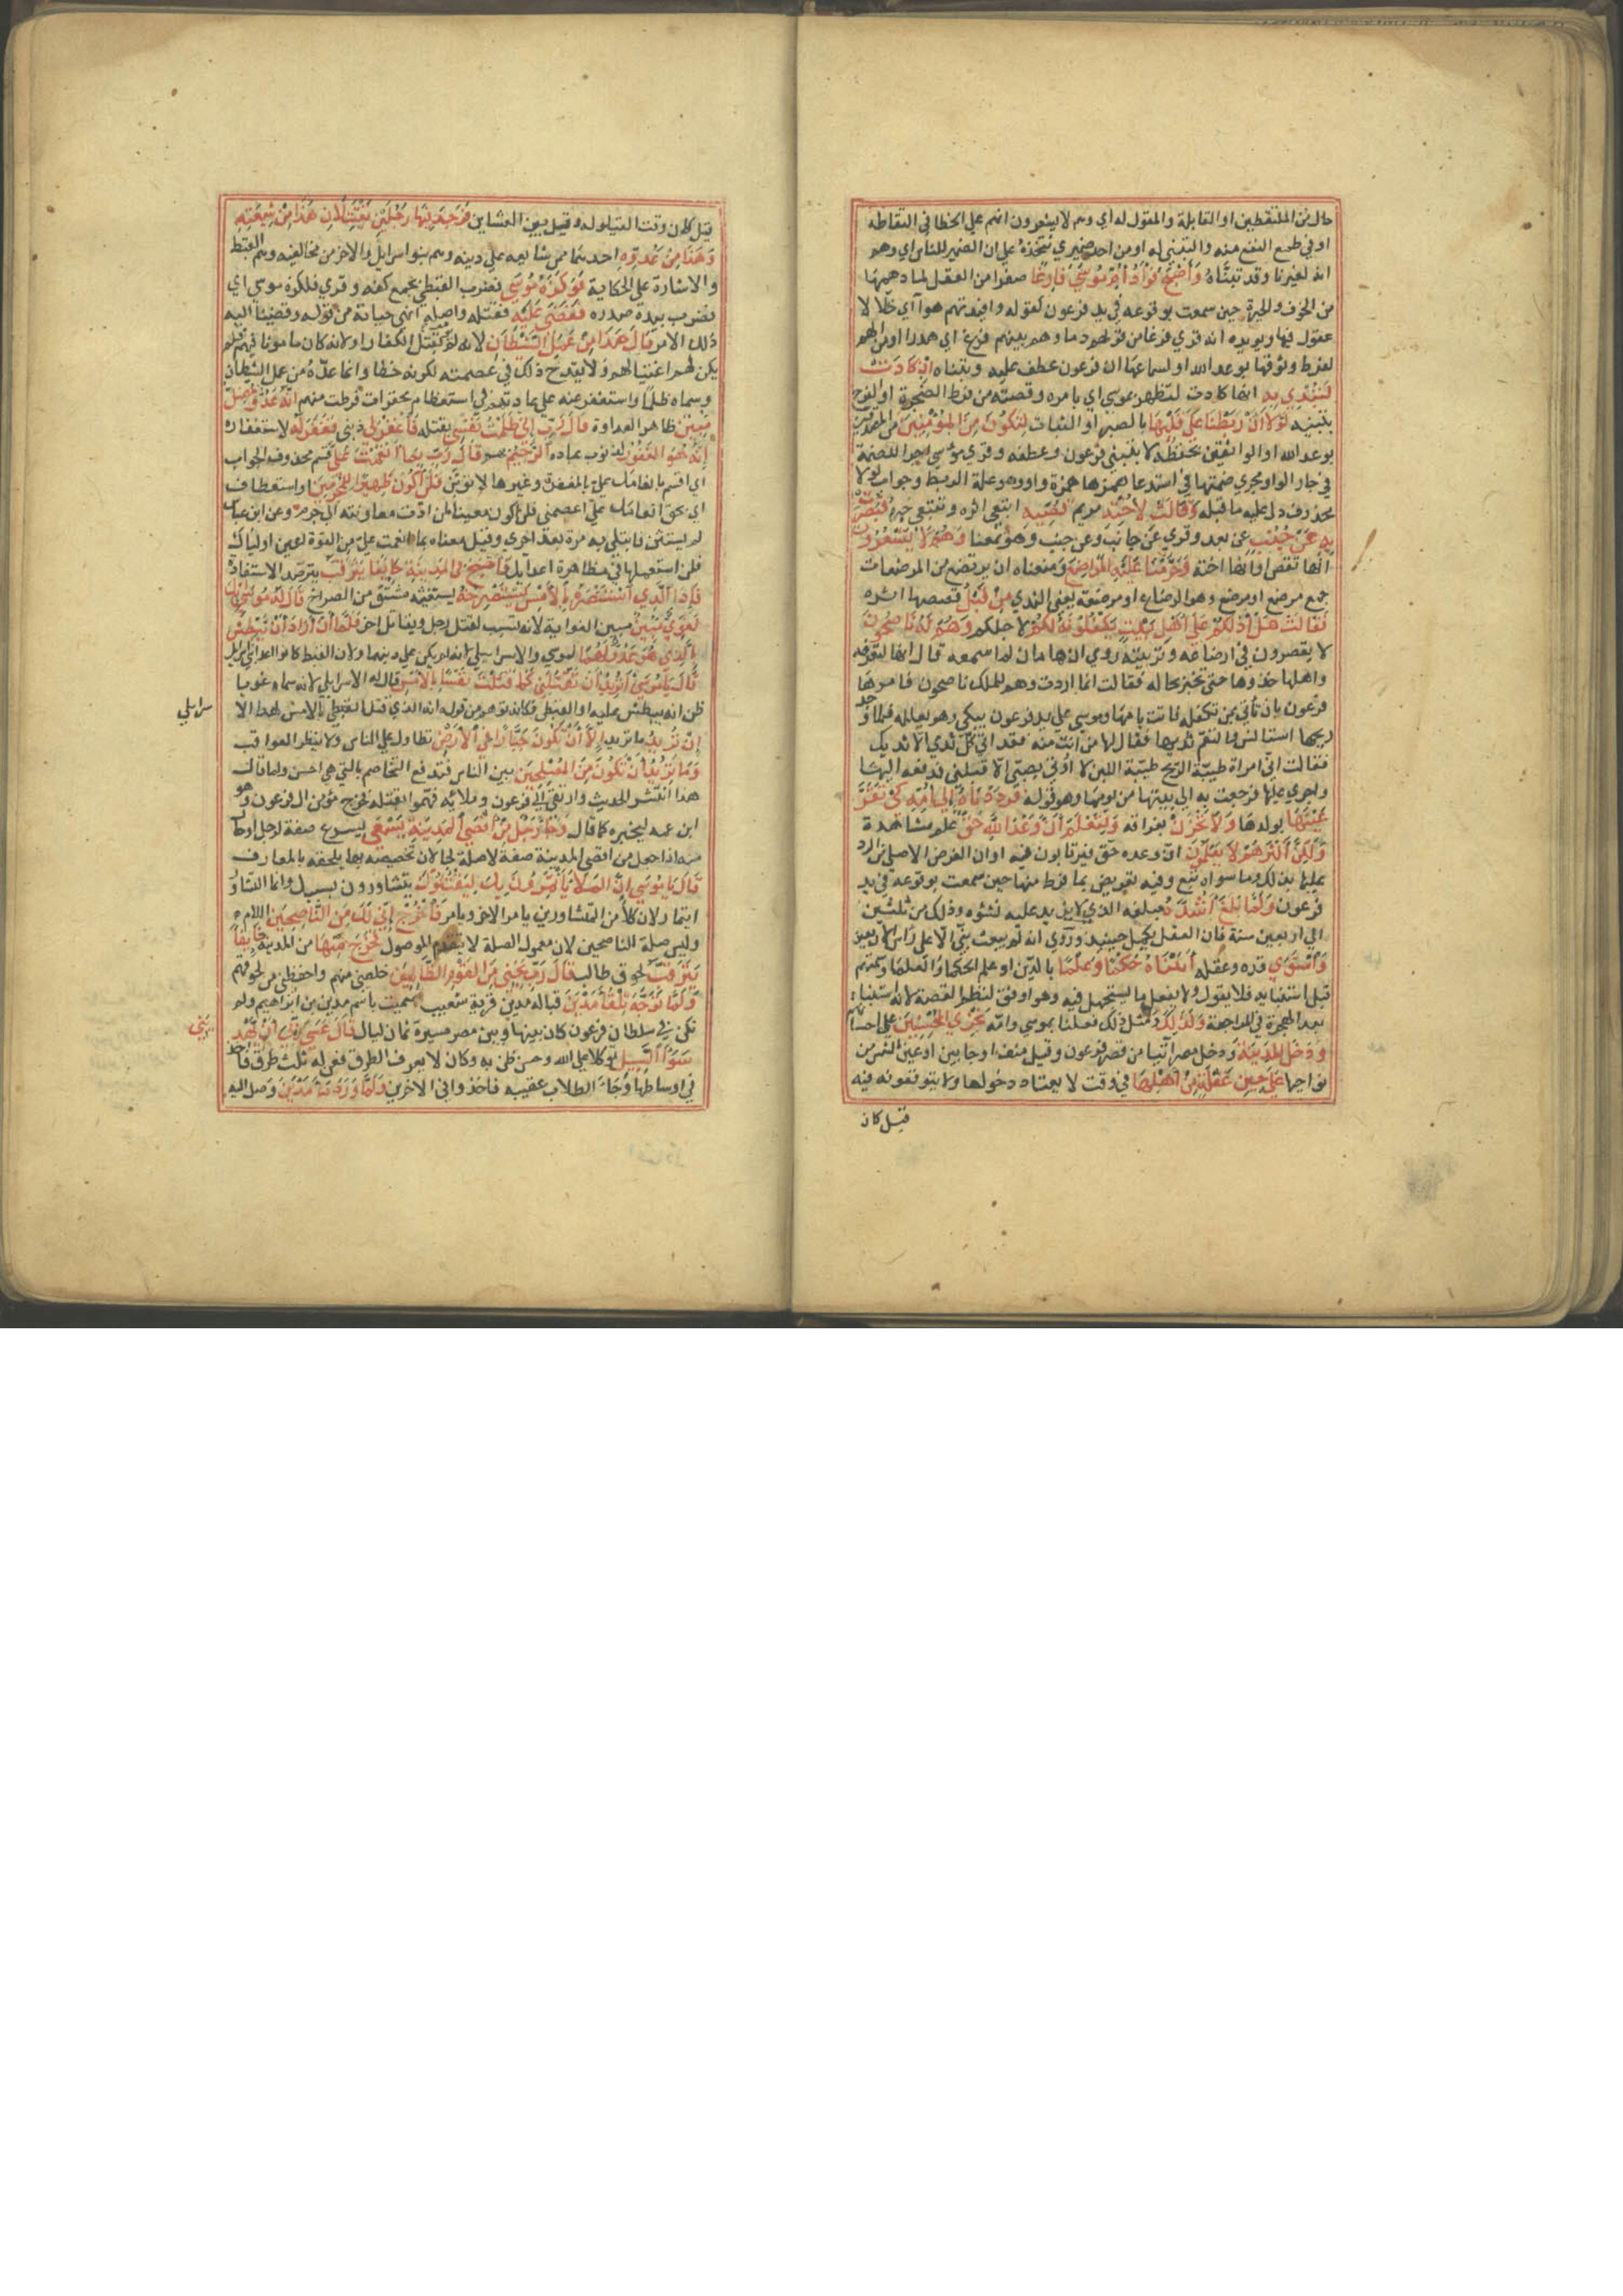 حال من الملتقطين او القايلة والمقول له أي وهم لا يشعرون انهم علي الخطا في التقاطه
او في طمع النفع منه والتبني له او من احد ضميري نتخذه علي ان الضمير للناس اي وهو
انه لغيرنا وقد تبيناه وَأَصْبَحَ فُؤَادُ أُمِّ مُوسَي فَارِغًا صفرا من العقل لما دهمها
من الخوف والحيرة حين سمعت بوقوعه في يد فرعون لقوله وافيدتهم هوا آي خلا لا
عقول فيها ويويده انه قري فرغا من قولهم دماوهم بينهم فرغ اي هدرا او من الهم
لفرط وثوقها بوعد الله او لسماعها ان فرعون عطف عليه وتبناه اِنْ كَادَتْ
لَتُبْدِي بِهِ انها كادت لتظهر بموسي اي بامره وقصته من فرط الضجرة او الفرح
بتبنيه لَوْلَا أَنْ رَبَطْنَا عَلَي قَلْبِهَا بالصبر او الثبات لِتَكُونَ مِنَ الْمُؤْمِنِينَ من المصدقين
بوعد الله او الواثقين بحفظه لا بتبني فرعون وعطفه وقري موسي اجرا للضمة
في جار الواو مجري ضمتها في استدعا همزها همزة واو وجوه وهو علة الربط وجواب لولا
محذوف دل عليه ما قبله وَقَالَتْ لِأُخْتِهِ مريم قُصِّيهِ ابتغي اثره وتتبعي خبره فَبَصُرَتْ
بِهِ عَنْ جُنُبٍ عن بعد وقري عن جانب وعن جنب وهو بمعنا وَهُمْ لَا يَشْعُرُونَ
انها تقص او انها اخته وَحَرَّمْنَا عَلَيْهِ الْمَرَاضِعَ ومنعناه ان يرتضع من المرضعات
جمع مرضع او مرضع وهو الرضاع او موضعه يعني الثدي مِنْ قَبْلُ قصصها اثره
فَقَالَتْ هَلْ أَدُلُّكُمْ عَلَي أَهْلِ بَيْتٍ يَكْفُلُونَهُ لَكُمْ لاجلكم وَهُمْ لَهُ نَاصِحُونَ
لا يقصرون في ارضاعه وتربيته روي ان هامان لما سمعه قال انها لتعرفه
واهلها خذوها حتي تخبر بحاله فقالت انما اردت وهم للملك ناصحون فامرها
فرعون بان تاتي بمن تكفله فاتت بامها وموسي علي يد فرعون يبكي وهو يعلله فلما وجد
ريحها استانس والتقم ثديها فقال لها من انت منه فقد ابي كل ثدي الا ثديك
فقالت اني امراة طيبة الريح طيبة اللبن لا اوتي بصبي الا قبلني فدفعه اليها
واجري عليها فرجعت به الي بيتها من يومها وهو قوله فَرَدَدْنَاهُ إِلَي أُمِّهِ كَيْ تَقَرَّ
عَيْنُهَا بولدها وَلَا تَحْزَنَ بفراقه وَلِتَعْلَمَ أَنَّ وَعْدَ اللَّهِ حَقٌّ علم مشاهدة
وَلَكِنَّ أَكْثَرَهُمْ لَا يَعْلَمُونَ ان وعده حق فيرتابون فيه او ان الغرض الاصلي من الرد
علمها بذلك وما سواه تبع وفيه تعريض بما فرط منها حين سمعت بوقوعه في يد
فرعون وَلَمَّا بَلَغَ أَشُدَّهُ مبلغه الذي لا يزيد عليه نشوه وذلك من ثلثين
الي اربعين سنة فان العقل يكمل حينيذ وروي انه لم يبعث نبي الا علي راس الاربعين
وَاسْتَوَي قده وعقله آتَيْنَاهُ حُكْمًا وَعِلْمًا بالدين او علم الحكما والعلما وسمتهم
قبل استنبايه فلا يقول ولا يفعل ما يستجهل فيه وهو اوفق لنظم القصة لانه استنبا
بعد الهجرة في المراجعة وَكَذَلِكَ ومثل ذلك فعلنا بموسي وامه نَجْزِي الْمُحْسِنِينَ علي احسانهم
وَدَخَلَ الْمَدِينَةَ ودخل مصر آتيا من قصر فرعون وقيل منف او حابين او عين الشمس من
نواحيها عَلَي حِينِ غَفْلَةٍ مِنْ أَهْلِهَا في وقت لا يعتاد دخولها ولا يتوقعونه فيه
قيل كان
قيل كان وقت القيلولة وقيل بين العشاين فَوَجَدَ فِيهَا رَجُلَيْنِ يَقْتَتِلَانِ هَذَا مِنْ شِيعَتِهِ
وَهَذَا مِنْ عَدُوِّهِ احدهما ممن شايعه علي دينه وهم بنو اسرايل والاخر من مخالفيه وهم القبط
والاشارة علي الحكاية فَوَكَزَهُ مُوسَي فضرب القبطي بجمع كفه وقري فلكزه موسي اي
فضرب بيده صدره فَقَضَي عَلَيْهِ فقتله واصله انهي حياته من قوله وقضينا اليه
ذلك الامر قَالَ هَذَا مِنْ عَمَلِ الشَّيْطَانِ لانه لم يومر بقتل الكفار او لانه كان مامونا فيهم فلم
يكن لهم اغتيالهم ولا يقدح ذلك في عصمته لكونه خطا وانما عدّه من عمل الشيطان
وسماه ظلما واستغفر عنه علي عادتهم في استعظام محقرات فرطت منهم انَّهُ عَدُوٌّ مُضِلٌّ
مُبِينٌ ظاهر العداوة قَالَ رَبِّ إِنِّي ظَلَمْتُ نَفْسِي بقتله فَاغْفِرْ لِي ذنبي فَغَفَرَ لَهُ لاستغفاره
إِنَّهُ هُوَ الْغَفُورُ لذنوب عباده الرَّحِيمُ بهم قَالَ رَبِّ بِمَا أَنْعَمْتَ عَلَيَّ قسم محذوف الجواب
اي اقسم بانعامك علي بالمغفرة وغيرها لاتوبن فَلَنْ أَكُونَ ظَهِيرًا لِلْمُجْرِمِينَ او استعطاف
اي بحق انعامك علي اعصمني فلن اكون معينا لمن ادت معاونته الي جرم وعن ابن عباس
لم يستثن فابتلي به مرة بعد اخري وقيل معناه بما انعمت علي من القوة اعين اولياك
فلن استعملها في مظاهرة اعدايك فَأَصْبَحَ فِي الْمَدِينَةِ خَايِفًا يَتَرَقَّبُ يترصد الاستقادة
فَإِذَا الَّذِي اسْتَنْصَرَهُ بِالْأَمْسِ يَسْتَصْرِخُهُ يستغيثه مشتق من الصراخ قَالَ لَهُ مُوسَي إِنَّكَ
لَغَوِيٌّ مُبِينٌ مبين الغواية لانه تسبب لقتل رجل ويقاتل اخر فَلَمَّا أَنْ أَرَادَ أَنْ يَبْطِشَ
بِالَّذِي هُوَ عَدُوٌّ لَهُمَا لموسي والاسرايلي لانه لم يكن علي دينهما او لان القبط كانوا اعدا بني اسرايل
قَالَ يَامُوسَي أَتُرِيدُ أَنْ تَقْتُلَنِي كَمَا قَتَلْتَ نَفْسًا بِالْأَمْسِ قاله الاسرايلي لانه لما سماه غويا
ظن انه يبطش عليه او القبطي فكانه توهم من قوله انه الذي قتل القبطي بالامس لهذا الا
سرايلي
إِنْ تُرِيدُ ما تريد إِلَّا أَنْ تَكُونَ جَبَّارًا فِي الْأَرْضِ تطاول علي الناس ولا تنظر العواقب
وَمَا تُرِيدُ أَنْ تَكُونَ مِنَ الْمُصْلِحِينَ بين الناس فتدفع التخاصم بالتي هي احسن ولما قال
هذا انتشر الحديث وارتقي الي فرعون وملائه فهموا بقتله فخرج مومن ال فرعون وهو
ابن عمه ليخبره كما قال وَجَاءَ رَجُلٌ مِنْ أَقْصَي الْمَدِينَةِ يَسْعَي يسرع صفة لرجل او حال
منه اذا جعل من اقصي المدينة صفة لا صلة لجا لان تخصيصه بها يلحقه بالمعارف
قَالَ يَامُوسَي إِنَّ الْمَلَأَ يَأْتَمِرُونَ بِكَ لِيَقْتُلُوكَ يتشاورون بسببك وانما التشاور
ايتمارا لان كلا من المتشاورين يامر الاخر ويامر فَاخْرُجْ إِنِّي لَكَ مِنَ النَّاصِحِينَ اللام
وليس صلة الناصحين لان معمول الصلة لا يتقدم الموصول فَخَرَجَ مِنْهَا من المدينة خَايِفًا
يَتَرَقَّبُ لحوق طالب قَالَ رَبِّ نَجِّنِي مِنَ الْقَوْمِ الظَّالِمِينَ خلصني منهم واحفظني من لحوقهم
وَلَمَّا تَوَجَّهَ تِلْقَاءَ مَدْيَنَ قبالة مدين قرية شعيب سميت باسم مدين بن ابراهيم ولم
تكن في سلطان فرعون كان بينها وبين مصر مسيرة ثمان ليال قَالَ عَسَي رَبِّي أَنْ يَهْدِ
يَنِي
سَوَاءَ السَّبِيلِ توكلا علي الله وحسن ظن به وكان لا يعرف الطرق فعن له ثلث طرق فاخذ
في اوساطها وجاء الطلاب عقيبه فاخذوا في الاخرين وَلَمَّا وَرَدَ مَاءَ مَدْيَنَ وصل اليه